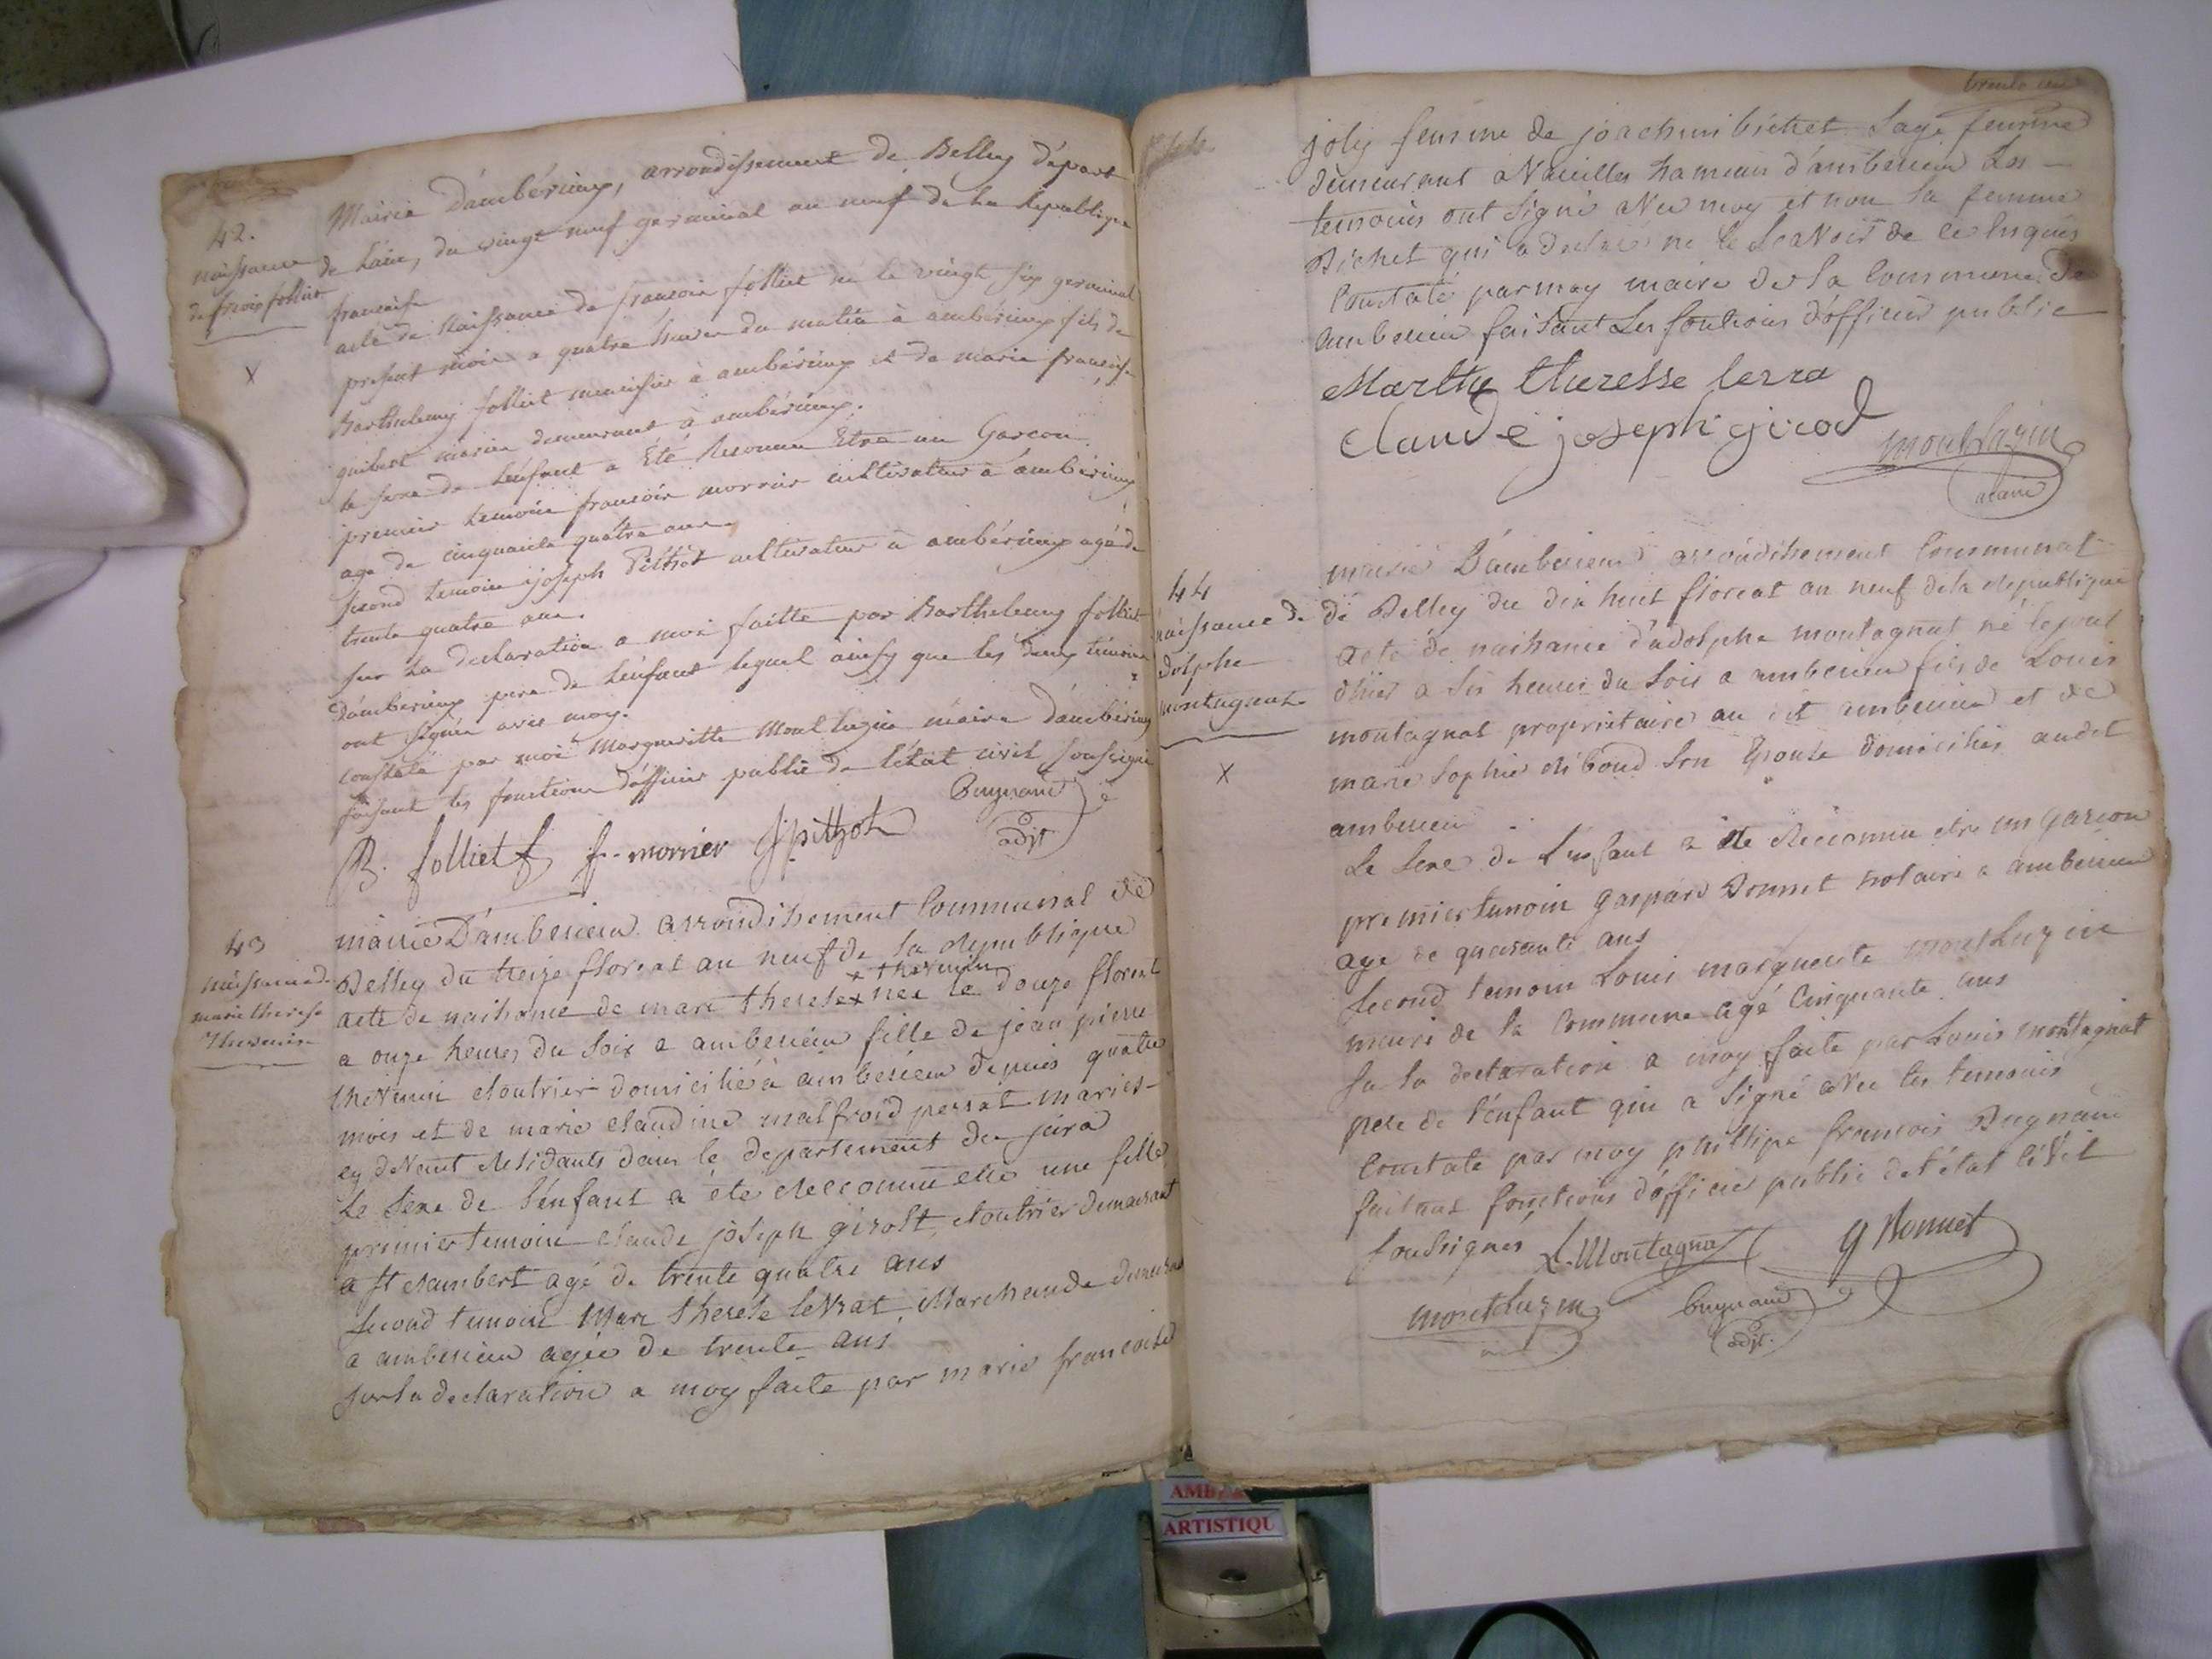 42.
naissance
de frcois folliet
X
Mairie d'ambérieux, arrondissement de Belley départ
de L'ain, du vingt neuf germinal an neuf de la République
francaise
acte de Naissance de francois folliet né le vingt six germinal
present mois a quatre heures du matin à ambérieux fils de
Barthelemy folliet menuisier à ambérieux et de marie francoise
guibert mariés demeurant à ambérieux.
le sexe de L'enfant a Eté Reconnu Etre un Garcon.
premier temoin francois morrier cultivateur à ambérieux
agé de cinquante quatre ans.
second temoin joseph Pittiot cultivateur à ambérieux agé de
trente quatre ans.
sur La declaration a moi faitte par Barthelemy folliet
d'ambérieux pere de L'enfant lequel ainsy que les deux témoins
ont signés avec moy.
Constaté par moi Margueritte Montluzin maire d'ambérieux
faisant les fonctions d'officier public de L'état civil soussigné
B. folliet f. morrier J pittiot Bugnand
adjt
43
naissance de
marie therese
Thevenin
mairie D'amberieu arrondissement Communal de
Belley du treize floreal an neuf de la republique
x thevenin
acte de naissance de marie therese x née le douze floreal
a onze heures du soir a amberieu fille de jean pierre
theVenin cloutrier domicilié à amberieu depuis quatre
mois et de marie claudine malfroid perrat mariés
cy deVant residants dans le departement du jura
Le sexe de l'enfant a été reconnu etre une fille
premier temoin claude joseph girost cloutrier demeurant
a st rambert agé de trente quatre ans
second temoin Marie therese leVrat Marchande demeurant
a amberieu agée de trente ans
sur la declaration a moy faite par marie francoise
trente un
joly femme de joachim bichet sage femme
demeurant a Vareilles hameau d'amberieu Les
temoins ont signé aVec moy et non la femme
Bichet qui a declaré ne le scaVoir de ce enquis
Constaté par moy maire de la Commune de
amberieu faisant Les fontions d'officier public
Marthe theresse lerra
Claude joseph girod
montluzin
maire
44
naissance de
dolphe
montagnat
X
mairie D'amberieu arrondissement Communal
de Belley du dix huit floreal an neuf de la republique
acte de naissance d'adolphe montagnat né le jour
d'hier a six heures du soir a amberieu fils de Louis
montagnat proprietaire au dit amberieu et de
marie sophie débond son Epouse domiciliés audit
amberieu
Le sexe de L'enfant a été Reconnu etre un garcon
premier temoin gaspard Bonnet notaire a amberieu
agé de quarante ans
second temoin Louis marguerite montluzin
maire de la Commune agé Cinquante ans
sur la declaration a moy faite par Louis montagnat
pere de l'enfant qui a signé aVec les temoins
Constaté par moy phillipe francois Bugnand
faisant fonctions d'officier public de l'état ciVil
soussignés L. Montagnat g Bonnet
montluzin Bugnand
adjt.
AMB
ARTISTIQU